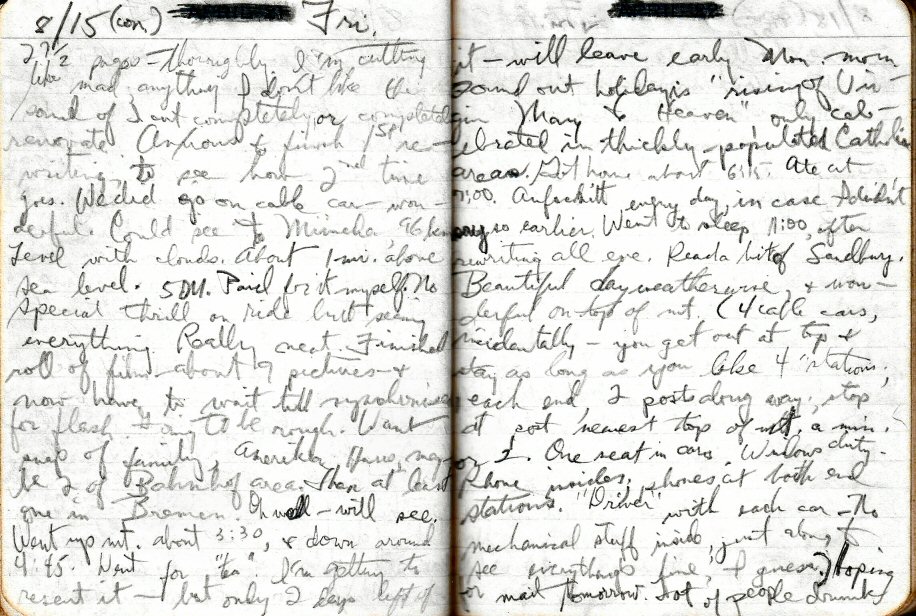 8/15 (con) Fri.
2 7½ pages - thoroughly I'm cutting
like mad, anything I don't like the
sound of I cut completely, or completely
renovate. Anxious to finish 1st re-
writing, to see how 2nd time
goes. We did go on cable car - won-
derful. Could see to 96 km
Level with clouds. About 1 mi. above
sea level. 5DM. Paid for it myself. No
special thrill on ride but seeing
everything. Really neat. Finished
roll of film - about 9 pictures - &
now have to wait till synchronized
for flash. to be rough. Want
snap of family, Amerika Haus, may
be 2 of Bahnhof area. Then at least
one in Bremen. Oh well - will see.
Went up mt. about 3:30, & down around
4:45. Went for "tea". I'm getting to
resent it - but only 2 days left of
it - will leave early Mon. morn
Found out holiday is "rising of Vir-
gin Mary to Heaven" only cel-
ebrated in thickly-populated Catholic
areas. Got home about 6:15. Ate at
7:00. every day, in case I didn't
say so earlier. Went to sleep 11:00, after
rewriting all eve. Read a bit of Sandburg.
Beautiful day weatherwise, & won-
derful on top of mt. (4 cable cars,
incidentally - you get out at top &
stay as long as you like 4 "stations",
each end, 2 posts along way, stop
at cost nearest top of mt, a min.
or 2. One seat in cars. Windows dirty.
Phone insides, phones at both end
stations. "Driver" with each car - no
mechanical stuff inside, just along to
see everything's fine, I guess.) Hoping
for mail tomorrow. Lot of people drunk